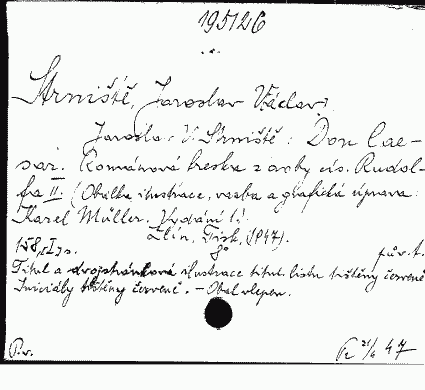 195126
Strniště, Jaroslav Václav
Jaroslav V. Strniště: Don Cae-
sar. Románová freska z doby cís. Rudol-
fa II. (Obálka, ilustrace, vazba a grafická úprava:
Karel Müller. Vydání 1.)
Zlín, Tisk, (1947).
158, [I] s. 8° pův. t.
Titul a dvojstránková ilustrace titul. listu tištěny červeně
Iniciály tištěny červeně. - Obal vlepen.
47